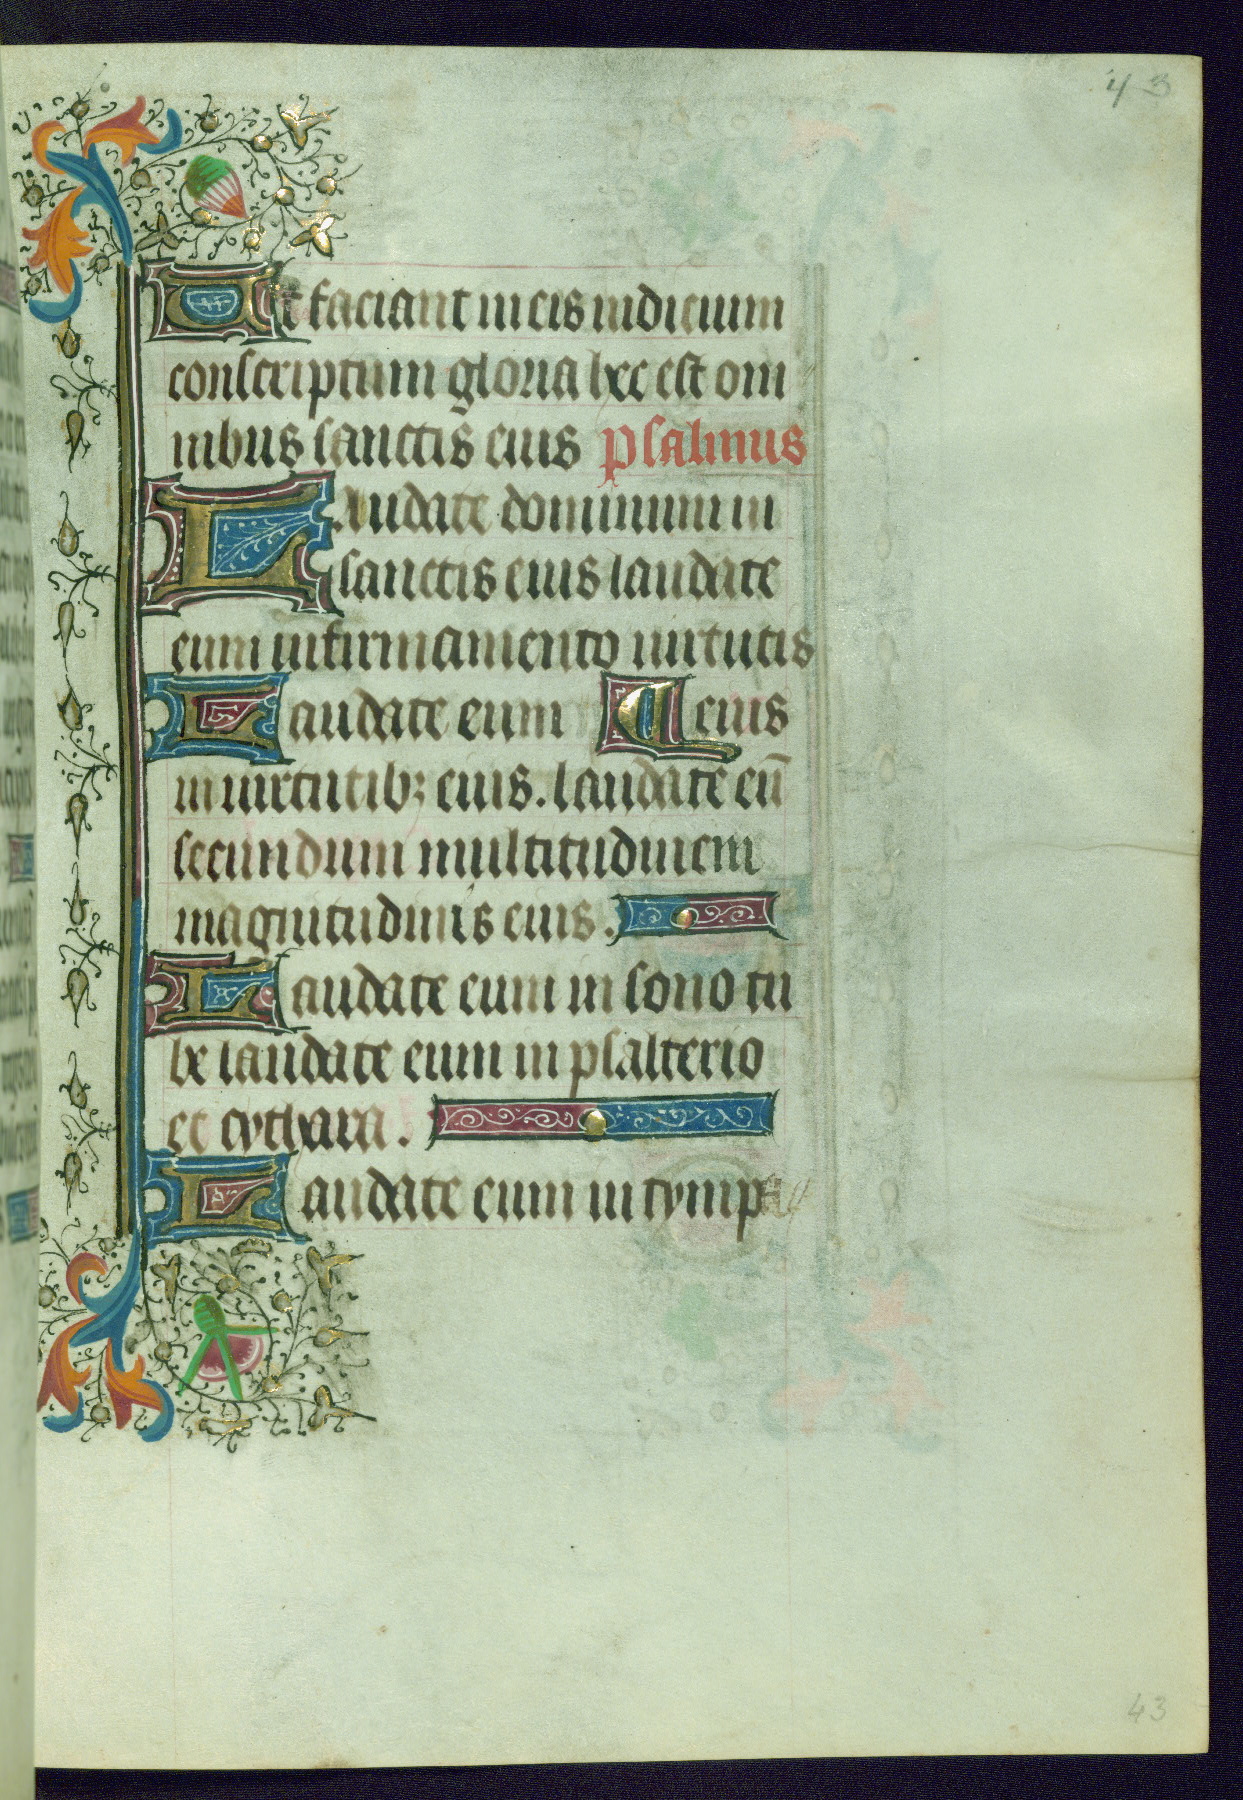 43
Ut faciant in eis iudicium
conscriptum gloria hec est om
nibus sanctis eius Psalmus
Laudate dominum in
sanctis eius laudate
eum in firmamento uirtutis
Laudate eum eius
in uirtutibꝫ eius. laudate eū
secundum multitudinem
magnitudinis eius.
Laudate eum in sono tu
be laudate eum in psalterio
et cythara.
Laudate eum in tympa
43